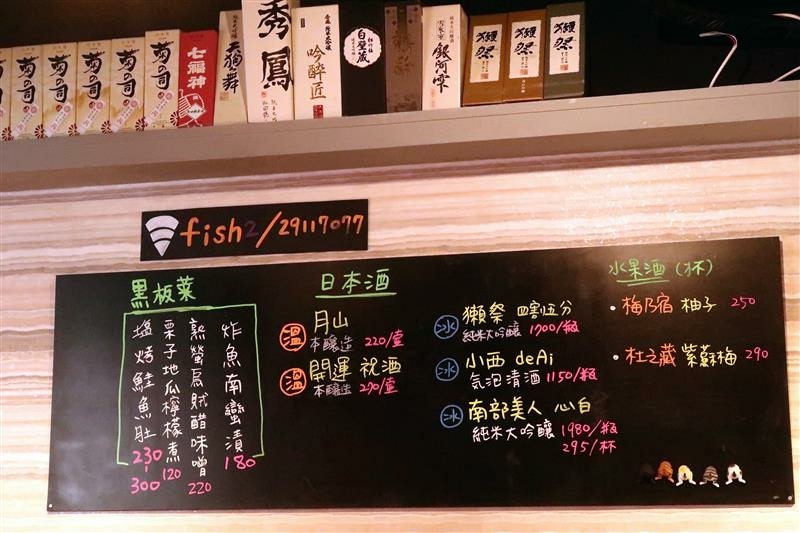 菊の司
菊の司
菊の司
菊の司
菊の司
七福神
天狗舞
秀鳳
吟醉匠
白壁蔵
銀河雫
獺祭
獺祭
獺祭
fish2/29117077
黑板菜
塩烤鮭魚肚 230-300
栗子地瓜檸檬煮 120
熟螢烏賊醋味噌 220
炸魚南蠻漬 180
日本酒
溫 月山
本釀造 220/壺
溫 開運 祝酒
本釀造 270/壺
冰 獺祭 四割五分
純米大吟釀 1700/瓶
冰 小西 deAi
氣泡清酒 1150/瓶
冰 南部美人 心白
純米大吟釀 1980/瓶
295/杯
水果酒(杯)
・梅乃宿 柚子 250
・杜之藏 紫蘇梅 290